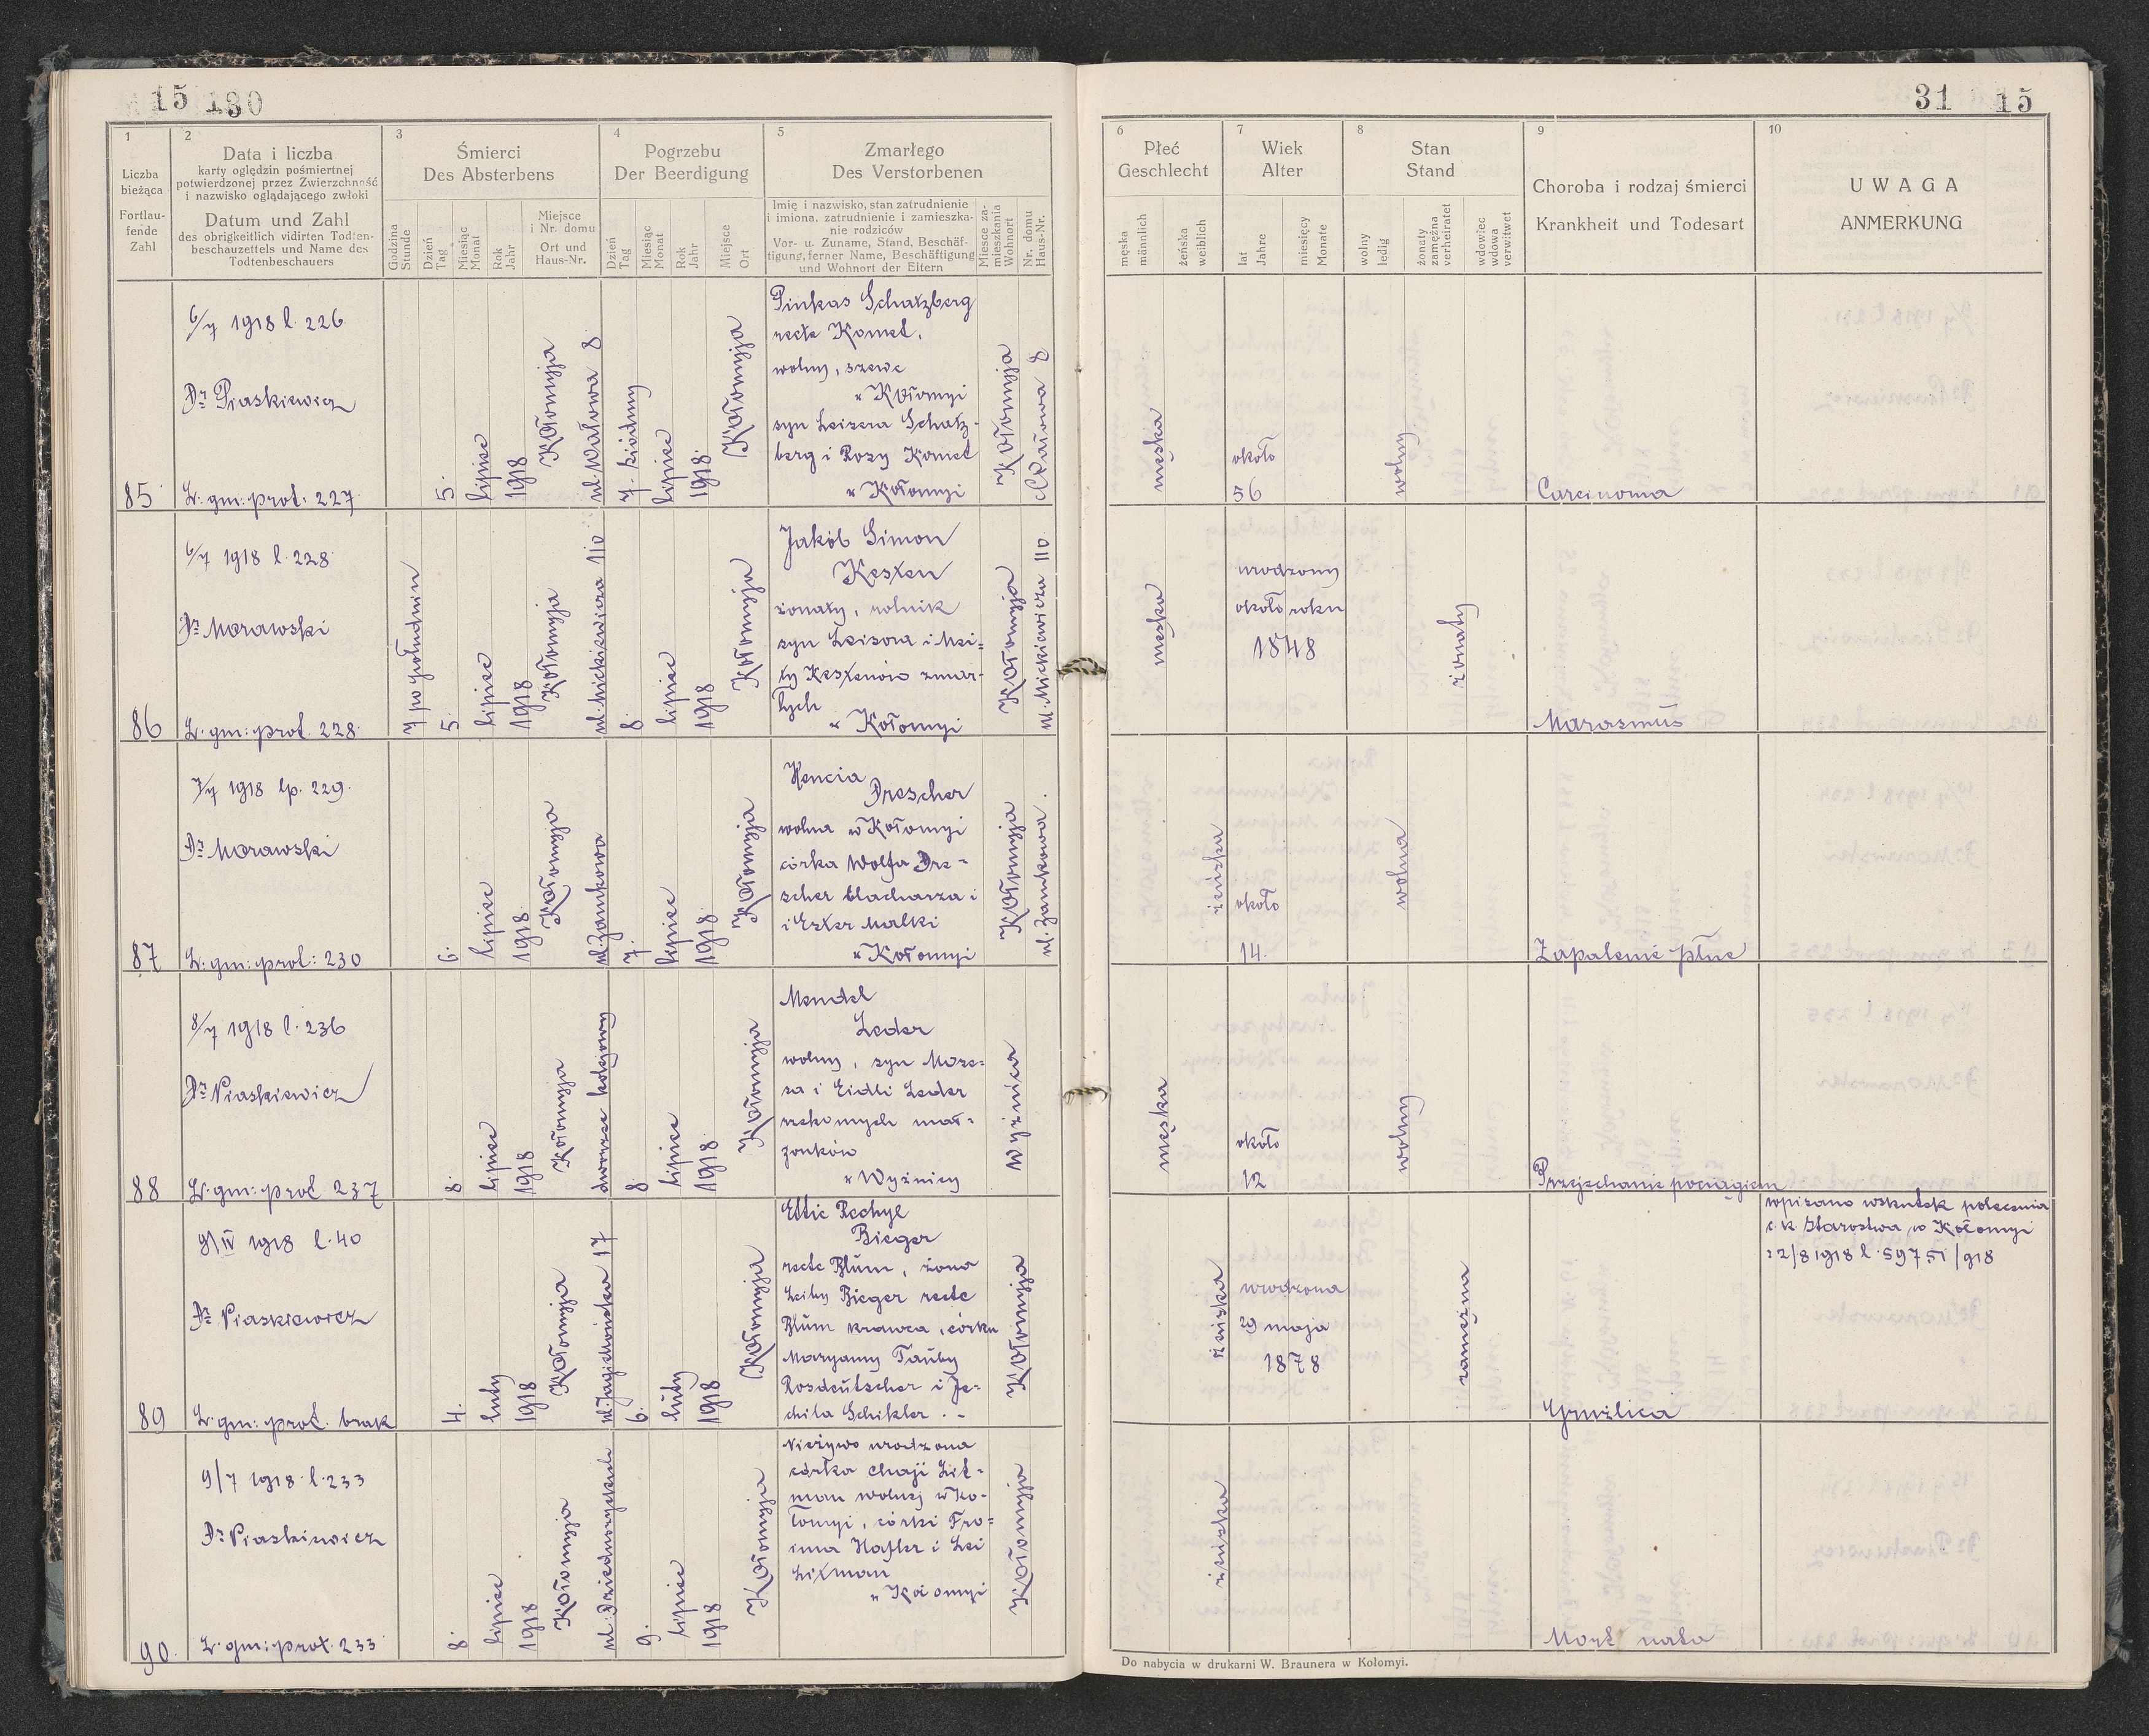 15 130
31 15
1
Liczba
bieżąca
Fortlau-
fende
Zahl
2
Data i liczba
karty oględzin pośmiertnej
potwierdzonej przez Zwierzchność
i nazwisko oglądającego zwłoki
Datum und Zahl
des obrigkeitlich vidirten Todten-
beschauzettels und Name des
Todtenbeschauers
3
Śmierci
Des Absterbens
Godzina
Stunde
Dzień
Tag
Miesiąc
Monat
Rok
Jahr
Miejsce
i Nr. domu
Ort und
Haus-Nr.
4
Pogrzebu
Der Beerdigung
Dzień
Tag
Miesiąc
Monat
Rok
Jahr
Miejsce
Ort
5
Zmarłego
Des Verstorbenen
Imię i nazwisko, stan zatrudnienie
i imiona, zatrudnienie i zamieszka-
nie rodziców
Vor- u. Zuname, Stand, Beschäf-
tigung, ferner Name, Beschäftigung
und Wohnort der Eltern
Miesce za-
mieszkania
Wohnort
Nr. domu
Haus-Nr.
6
Płeć
Geschlecht
męska
männlich
żeńska
weiblich
7
Wiek
Alter
lat
Jahre
miesięcy
Monate
8
Stan
Stand
wolny
ledig
żonaty
zamężna
verheiratet
wdowiec
wdowa
verwitwet
9
Choroba i rodzaj śmierci
Krankheit und Todesart
10
UWAGA
ANMERKUNG
85
6/7 1918 l. 226
Dr Piaskiewicz
L: gm: prot: 227
5.
lipiec
1918
Kołomyja
ul. Wałowa 8
7. siódmy
lipiec
1918.
Kołomyja
Pinkas Schatzberg
recte Komet,
wolny, szewc
w Kołomyi
syn Leizera Schatz-
berg i Rozy Komet
w Kołomyi
Kołomyja
Wałowa 8
męska
około
56
wolny
Carcinoma
86
6/7 1918 l. 228
Dr Morawski
L: gm: prot. 228
7 po południu
5
lipiec
1918
Kołomyja
ul. Mickiewicza 110
8.
lipiec
1918
Kołomyja
Jakób Simon
Kesten
żonaty, rolnik
syn Leisora i Mei=
ty Kestenów zmar-
łych
w Kołomyi
Kołomyja
ul. Mickiewicza 110.
męska
urodzony
około roku
1848
żonaty
Marasmus
87
7/7 1918 lp. 229.
Dr Morawski
L: gm: prot: 230
6.
lipiec
1918
Kołomyja
ul. Zamkowa
7.
lipiec
1918
Kołomyja
Hencia
Drescher
wolna w Kołomyi
córka Wolfa Dre-
scher blacharza i
i Ester Malki
w Kołomyi
Kołomyja
ul. Zamkowa.
żeńska
około
14.
wolna
Zapalenie płuc
88
8/7 1918 l. 236
Dr Piaskiewicz
L: gm: prot 237
8.
lipiec
1918
Kołomyja
dworzec kolejowy
8
lipiec
1918
Kołomyja
Mendel
Leder
wolny, syn Moze=
sa i Eidli Leder
rzekomych mał-
żonków
w Wyżnicy
Wyżnica
męska
około
12
wolny
Przejechanie pociągiem
89
9/IV 1918 l. 40
Dr Piaskiewicz
L: gm: prot. brak
4.
luty
1918
Kołomyja
ul. Jagiellońska 17
6.
luty
1918
Kołomyja
Ettie Rechyl
Bieger
recte Blüm, żona
Leiby Bieger recte
Blüm krawca, córka
Maryamy Tauby
Rosdeutscher i Je-
chila Schikler. -
Kołomyja
żeńska
urodzona
29 maja
1878
zamężna
Gruźlica
wpisano wskutek polecenia
c. k. Starostwa w Kołomyi
90.
9/7 1918 l. 233
Dr Piaskiewicz
L: gm: prot. 233
8.
lipiec
1918
Kołomyja
9.
lipiec
1918
Kołomyja
Nieżywo urodzona
córka Chaji Lit=
man wolnej w Ko-
łomyi, córki Fro=
ima Hafler i Lei
Litman
w Kołomyi
Kołomyja
żeńska
Do nabycia w drukarni W. Braunera w Kołomyi.